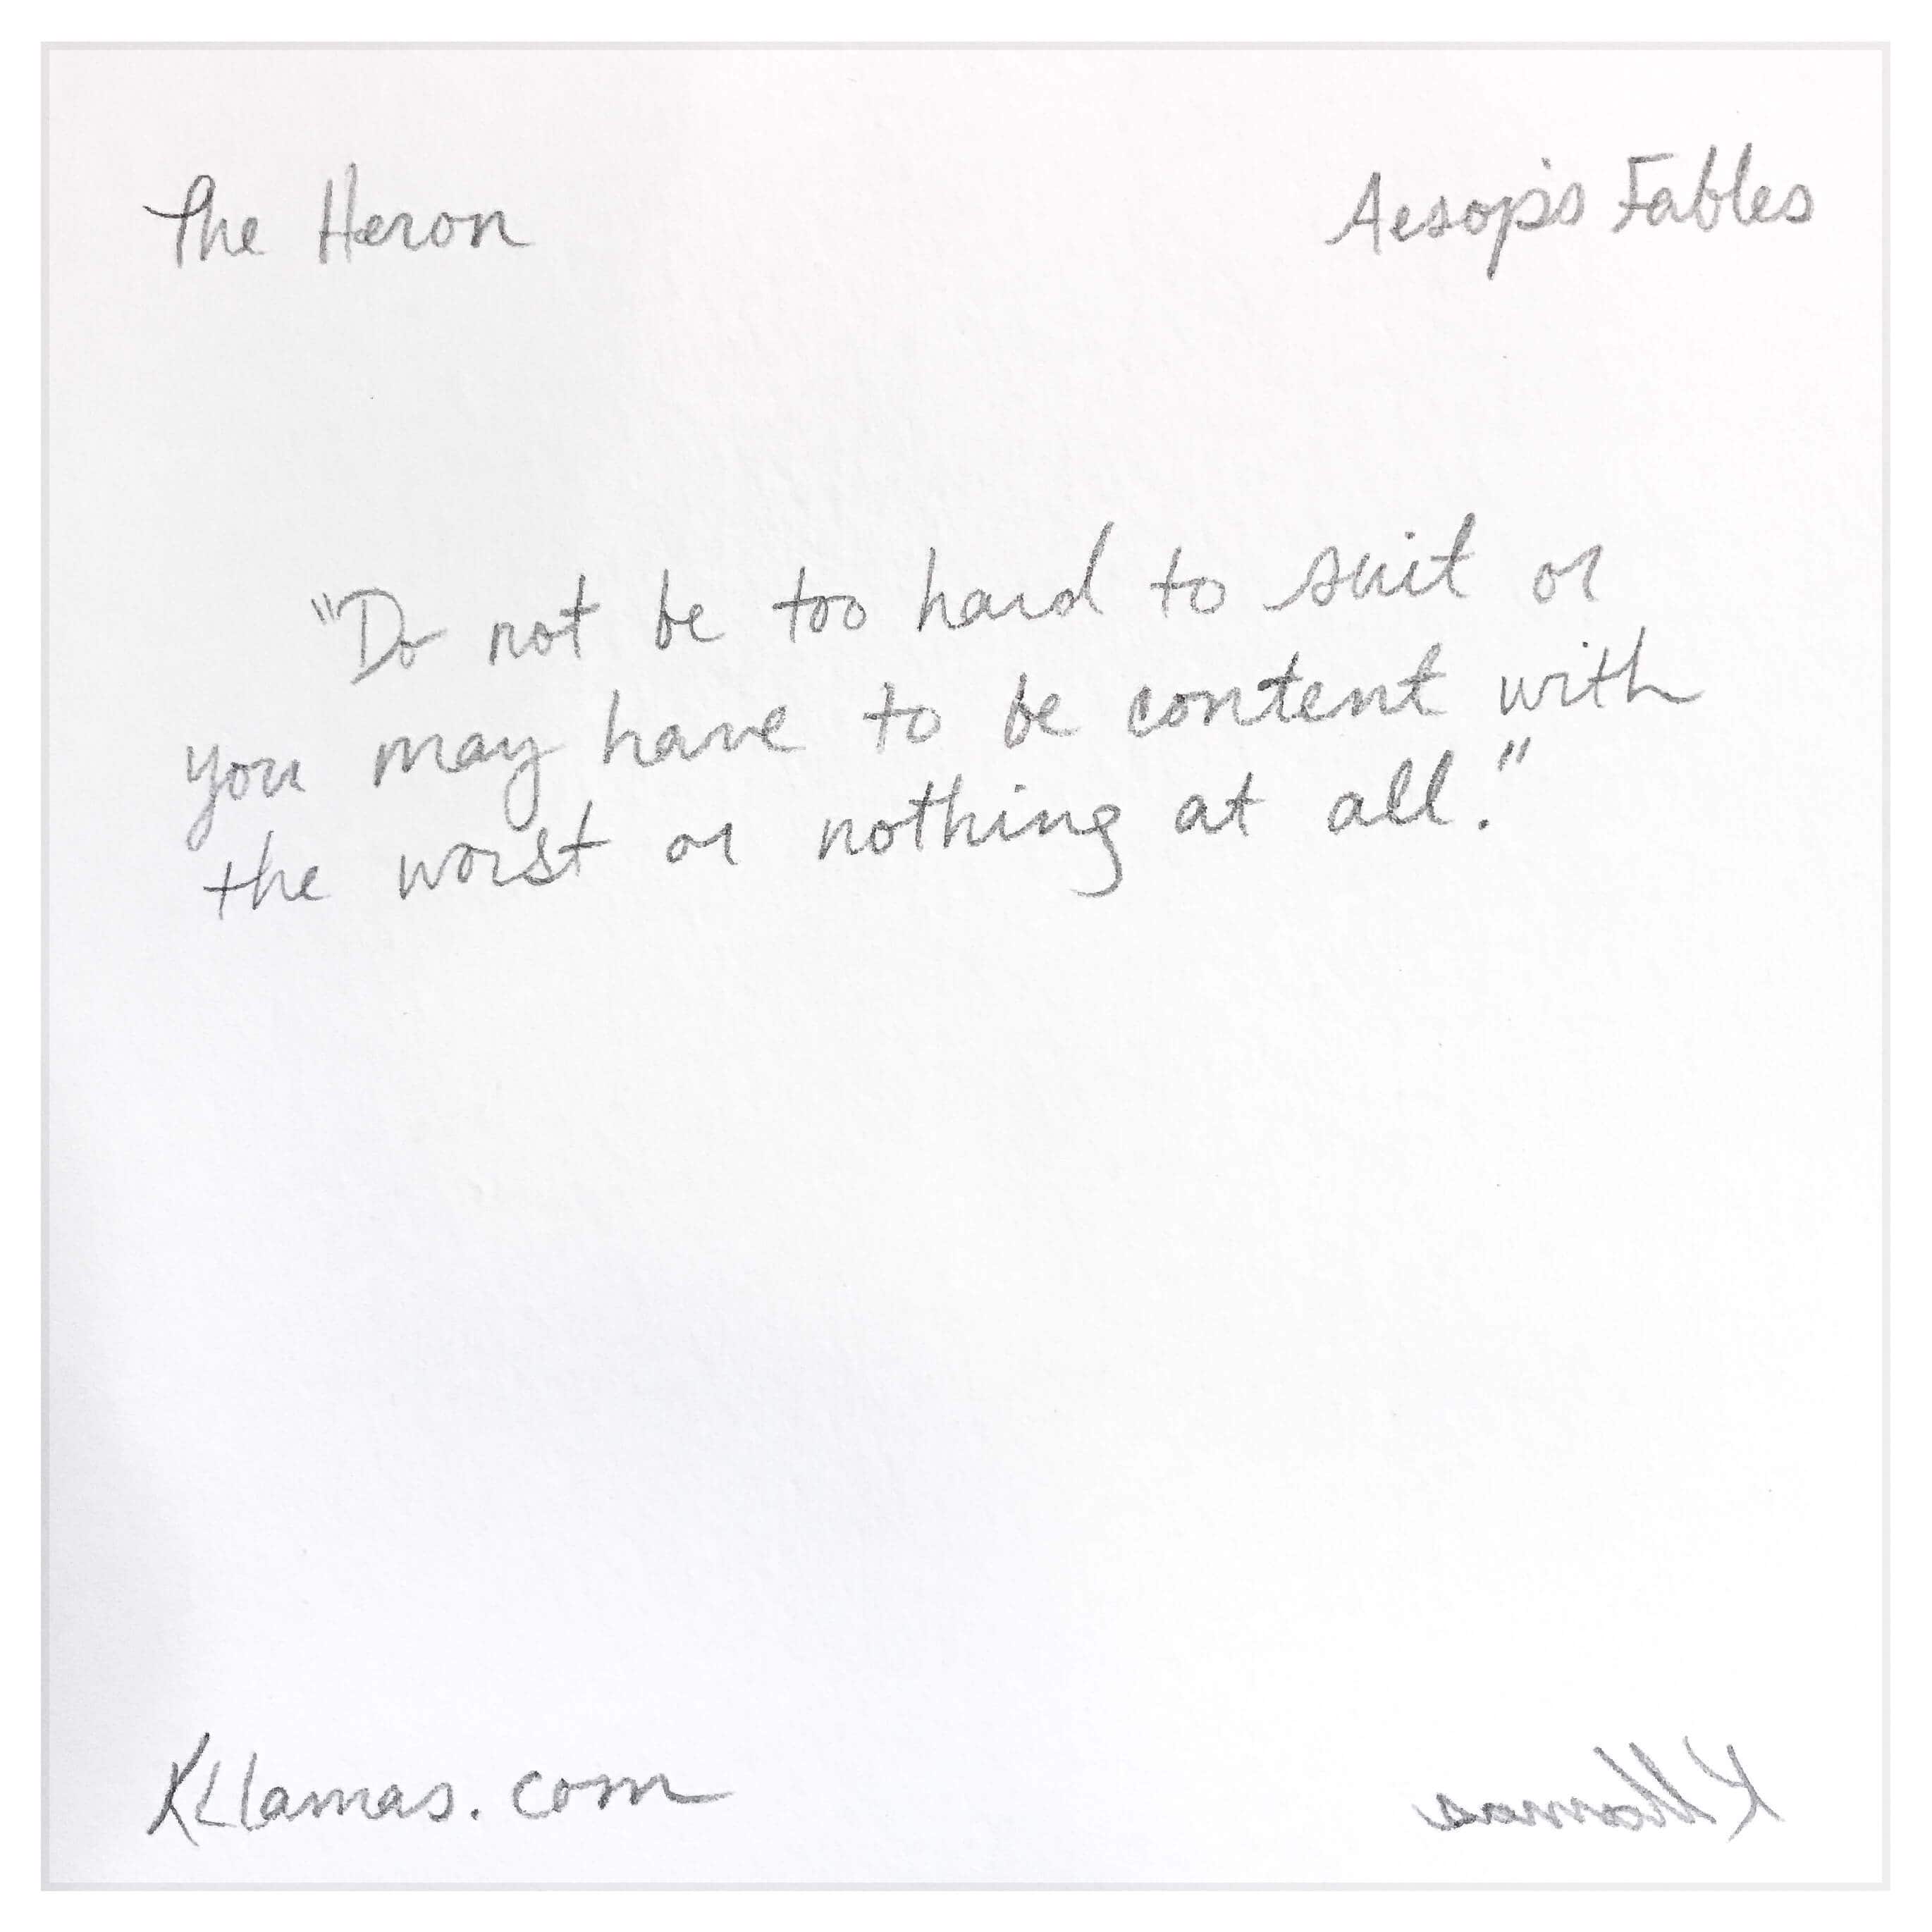 The Heron
Aesop's Fables
"Do not be too hard to suit or
you may have to be content with
the worst or nothing at all."
KLlamas.com
KLlamas